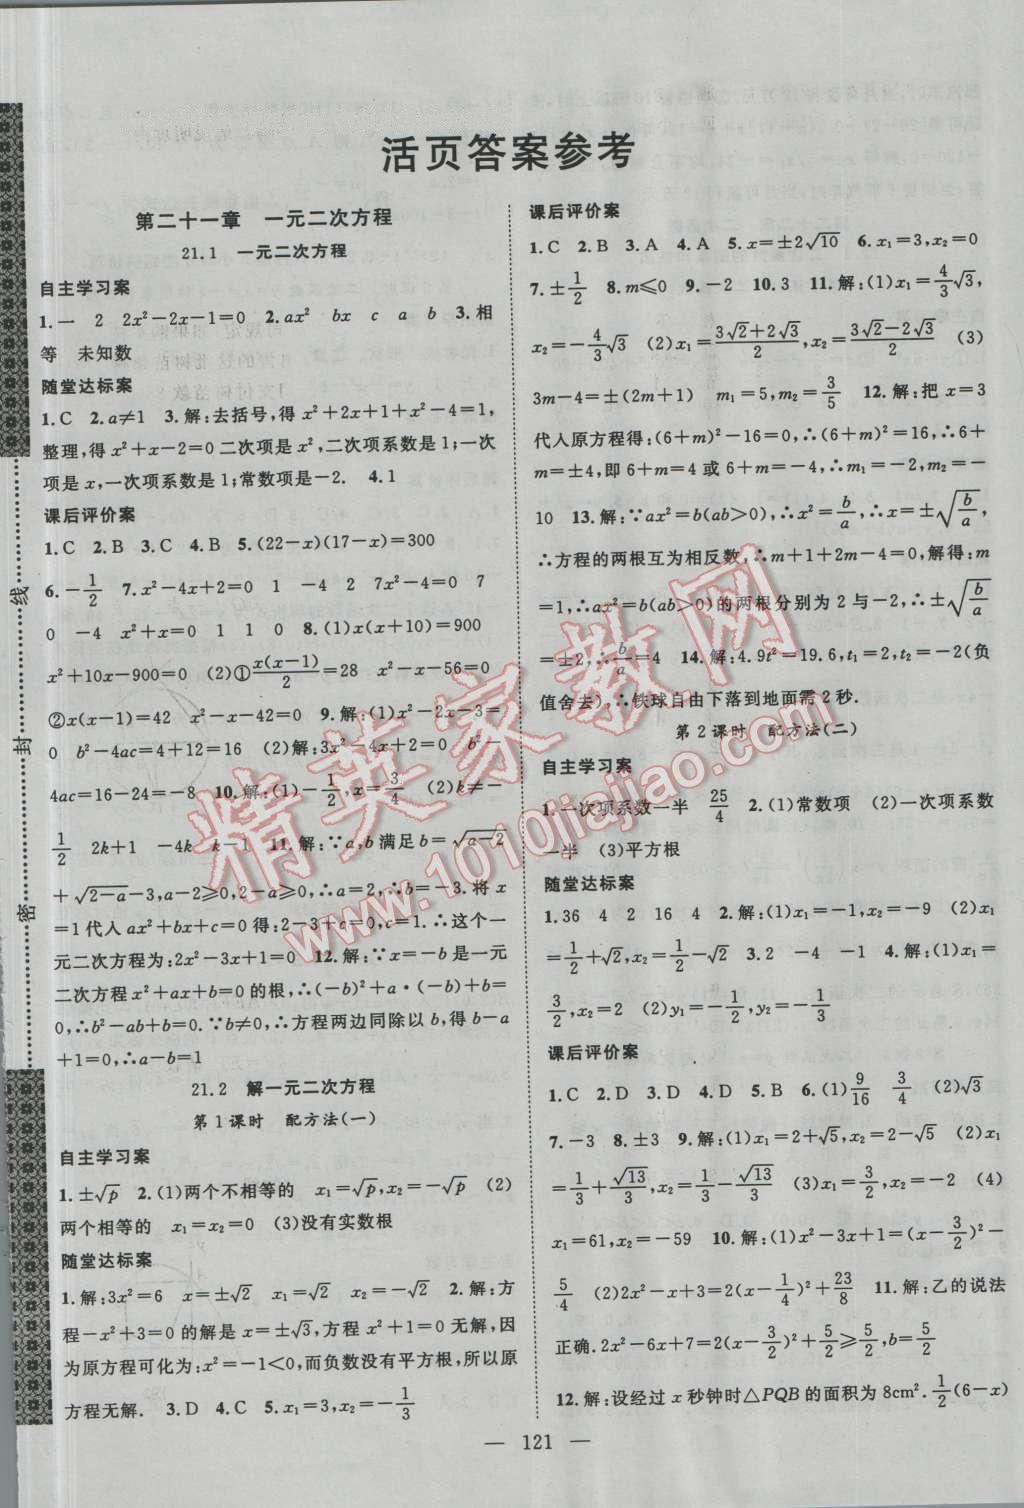 活页答案参考
第二十一章 一元二次方程
21.1 一元二次方程
自主学习案
1.一 2 2x²-2x-1=0 2.ax² bx c a b 3.相
等 未知数
随堂达标案
1.C 2.a≠1 3.解:去括号,得 x²+2x+1+x²-4=1,
整理,得 x²+x-2=0 二次项是 x²,二次项系数是 1;一次
项是 x,一次项系数是 1;常数项是-2. 4.1
课后评价案
1.C 2.B 3.C 4.B 5.(22-x)(17-x)=300
6.-1/2 7.x²-4x+2=0 1 -4 2 7x²-4=0 7
0 -4 x²+x=0 1 1 0 8.(1)x(x+10)=900
x²+10x-900=0 (2)①x(x-1)/2=28 x²-x-56=0
②x(x-1)=42 x²-x-42=0 9.解:(1)x²-2x-3=
0 b²-4ac=4+12=16 (2)解:3x²-4x+2=0 b²-
4ac=16-24=-8 10.解:(1)-1/2,x=3/4 (2)k≠-
1/2 2k+1 -4k k-1 11.解:∵a,b 满足 b=√(a-2)
+√(2-a)-3,a-2≥0,2-a≥0,∴a=2,∴b=-3.将 x
=1 代入 ax²+bx+c=0 得:2-3+c=0,c=1.∴这个一
元二次方程为:2x²-3x+1=0 12.解:∵x=-b 是一元
二次方程 x²+ax+b=0 的根,∴(-b)²+a·(-b)+b=
0,∴b²-ab+b=0.∵b≠0,∴方程两边同除以 b,得 b-a
+1=0,∴a-b=1
21.2 解一元二次方程
第 1 课时 配方法(一)
自主学习案
1.±√p 2.(1)两个不相等的 x₁=√p,x₂=-√p (2)
两个相等的 x₁=x₂=0 (3)没有实数根
随堂达标案
1.解:3x²=6 x=±√2 x₁=√2 x₂=-√2 2.解:方
程-x²+3=0 的解是 x=±√3,方程 x²+1=0 无解,因
为原方程可化为:x²=-1<0,而负数没有平方根,所以原
方程无解. 3.D 4.C 5.x₁=3,x₂=-1/3
课后评价案
1.C 2.B 3.A 4.A 5.x=±2√10 6.x₁=3,x₂=0
7.±1/2 8.m≤0 9.-2 10.3 11.解:(1)x₁=4/3√3,
x₂=-4/3√3 (2)x₁=(3√2+2√3)/2,x₂=(3√2-2√3)/2 (3)
3m-4=±(2m+1) m₁=5,m₂=3/5 12.解:把 x=3
代入原方程得:(6+m)²-16=0,∴(6+m)²=16,∴6+
m=±4,即 6+m=4 或 6+m=-4,∴m₁=-2,m₂=-
10 13.解:∵ax²=b(ab>0),∴x²=b/a,∴x=±√(b/a),
∴方程的两根互为相反数,∴m+1+2m-4=0,解得:m
=1,∴ax²=b(ab>0)的两根分别为 2 与-2,∴±√(b/a)
=±2,∴b/a=4 14.解:4.9t²=19.6,t₁=2,t₂=-2(负
值舍去),∴铁球自由下落到地面需 2 秒.
第 2 课时 配方法(二)
自主学习案
1.一次项系数一半 25/4 2.(1)常数项 (2)一次项系数
一半 (3)平方根
随堂达标案
1.36 4 2 16 4 2.解:(1)x₁=-1,x₂=-9 (2)x₁
=1/2+√2,x₂=1/2-√2 3.2 -4 -1 4.解:(1)x₁=
3/2,x₂=2 (2)y₁=-1/2,y₂=-1/3
课后评价案
1.C 2.D 3.D 4.D 5.B 6.(1)9/16 3/4 (2)√3
7.-3 8.±3 9.解:(1)x₁=2+√5,x₂=2-√5 (2)x₁
=1/3+√13/3,x₂=1/3-√13/3 (3)x₁=3/2,x₂=-2 (4)
x₁=61,x₂=-59 10.解:(1)x²-3x+1=(x-3/2)²-
5/4 (2)2x²-x+3=2(x-1/4)²+23/8 11.解:乙的说法
正确.2x²-6x+7=2(x-3/2)²+5/2≥5/2,b=5/2
12.解:设经过 x 秒钟时△PQB 的面积为 8cm².1/2(6-x)
— 121 —
线
封
密
精英家教网
www.1010jiajiao.com